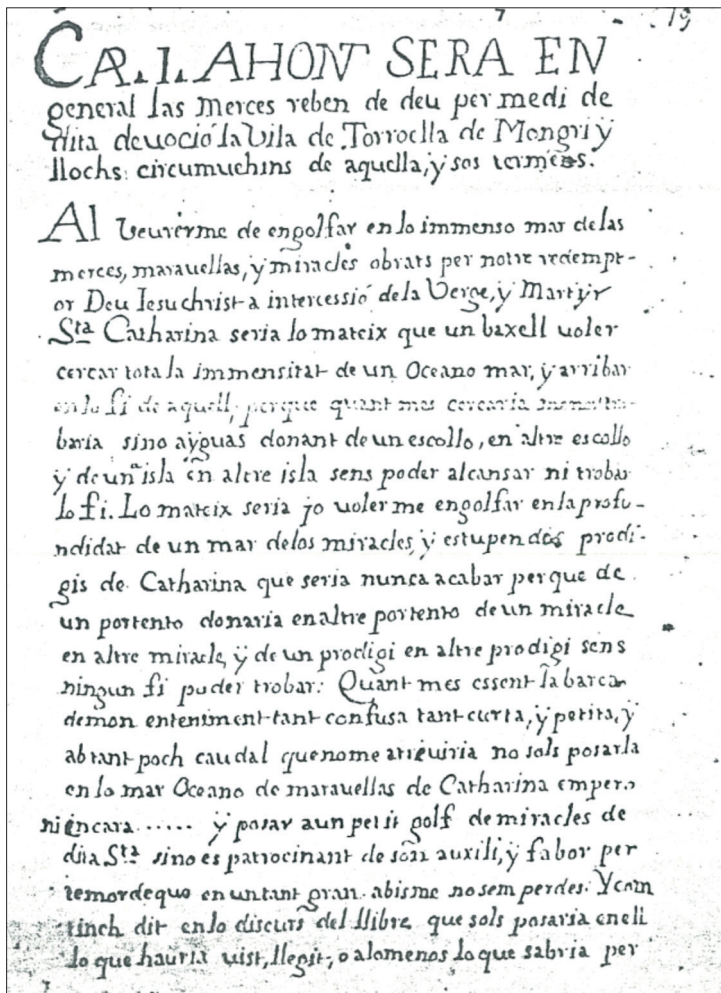 19
CAP.I. AHONT SERA EN
general las Merces reben de deu per medi de
dita devoció la Vila de Torroella de Mongri y
llochs circumvehins de aquella, y sos termens.
Al veurerme de engolfar en lo immenso mar de las
merces, maravellas, y miracles obrats per nostre redempt-
or Deu Iesuchrist a intercessió de la Verge, y Martyr
Sta Catharina seria lo mateix que un baxell voler
cercar tota la immensitat de un Oceano mar, y arribar
en lo fi de aquell, perque quant mes cercaria
baria sino ayguas donant de un escollo, en altre escollo
y de una isla en altre isla sens poder alcansar ni trobar
lo fi. Lo mateix seria jo voler me engolfar en la profu-
ndidat de un mar de los miracles, y estupendos prodi-
gis de Catharina que seria nunca acabar perque de
un portento donaria en altre portento de un miracle
en altre miracle, ÿ de un prodigi en altre prodigi sens
ningun fi poder trobar: Quant mes essent la barca
de mon enteniment tant confusa tant curta, ÿ petita, ÿ
ab tant poch caudal que no me atreviria no sols posarla
en lo mar Oceano de maravellas de Catharina empero
ni encara ..... ÿ posar a un petit golf de miracles de
dita Sta sino es patrocinant de son auxili, ÿ fabor per
temor de que en un tant gran abisme no sem perdes. Y com
tinch dit en lo discurs del llibre que sols posaria en ell
lo que hauria vist, llegit, o alomenos lo que sabria per